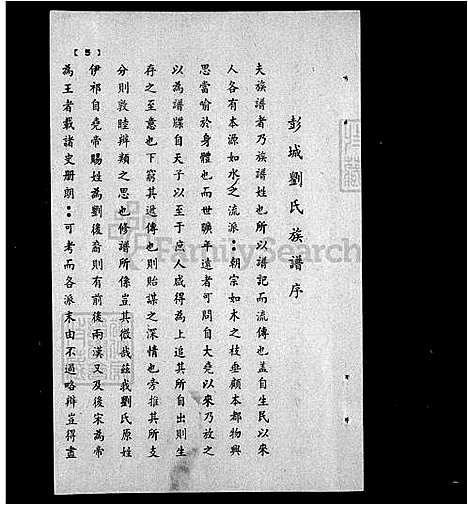 彭城劉氏族譜序
夫族譜者乃族譜姓也所以譜記而流傳也蓋自生民以來
人各有本源如水之流派：朝宗如木之枝垂顧本都物與
思當喻於身體也而世曠年遠者可問自大堯以來乃放之
以為譜牒自天子以至于庶人咸得為上追其所自出則生
存之至意也下窮其遞傳也則貽謀之深情也旁推其所支
分則敦睦辨類之思也修譜所係豈其微哉茲我劉氏原姓
伊祁自堯帝賜姓為劉後裔則有前後兩漢又及後宋為帝
為王者載諸史册朗：可考而各派末由不過略辨豈得盡
[5]
FamilySearch